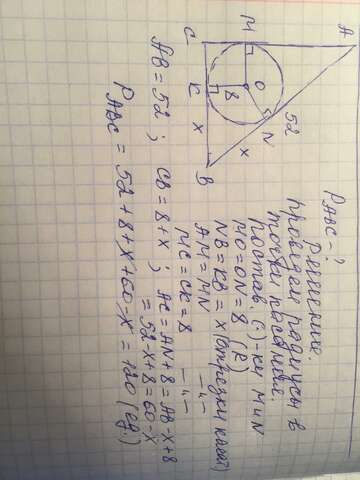 A
M
C
O
8
52
N
K
x
x
B
P_ABC - ?
Решение.
Проведем радиусы в
точки касания.
постав. (·)-ки M и N
MO = ON = 8 (R)
NB = KB = x (отрезки касат)
AM = MN –"–
MC = CK = 8 –"–
AB = 52 ; CB = 8 + x ; AC = AN + 8 = AB - x + 8
= 52 - x + 8 = 60 - x
P_ABC = 52 + 8 + x + 60 - x = 120 (ед)